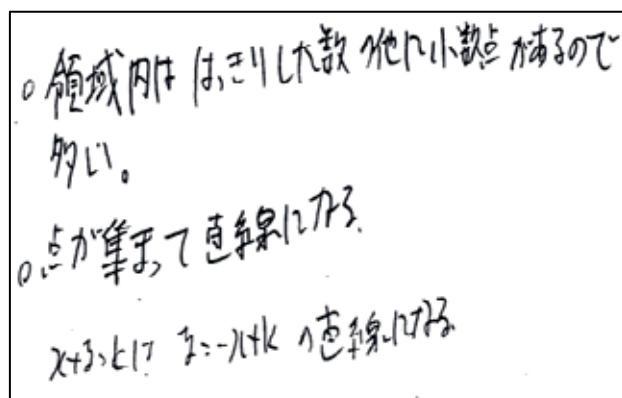 ○ 領域内は はっきりした数の他に小数点があるので
多い。
○ 点が集まって直線になる
x+y=kは y=-x+k の直線になる